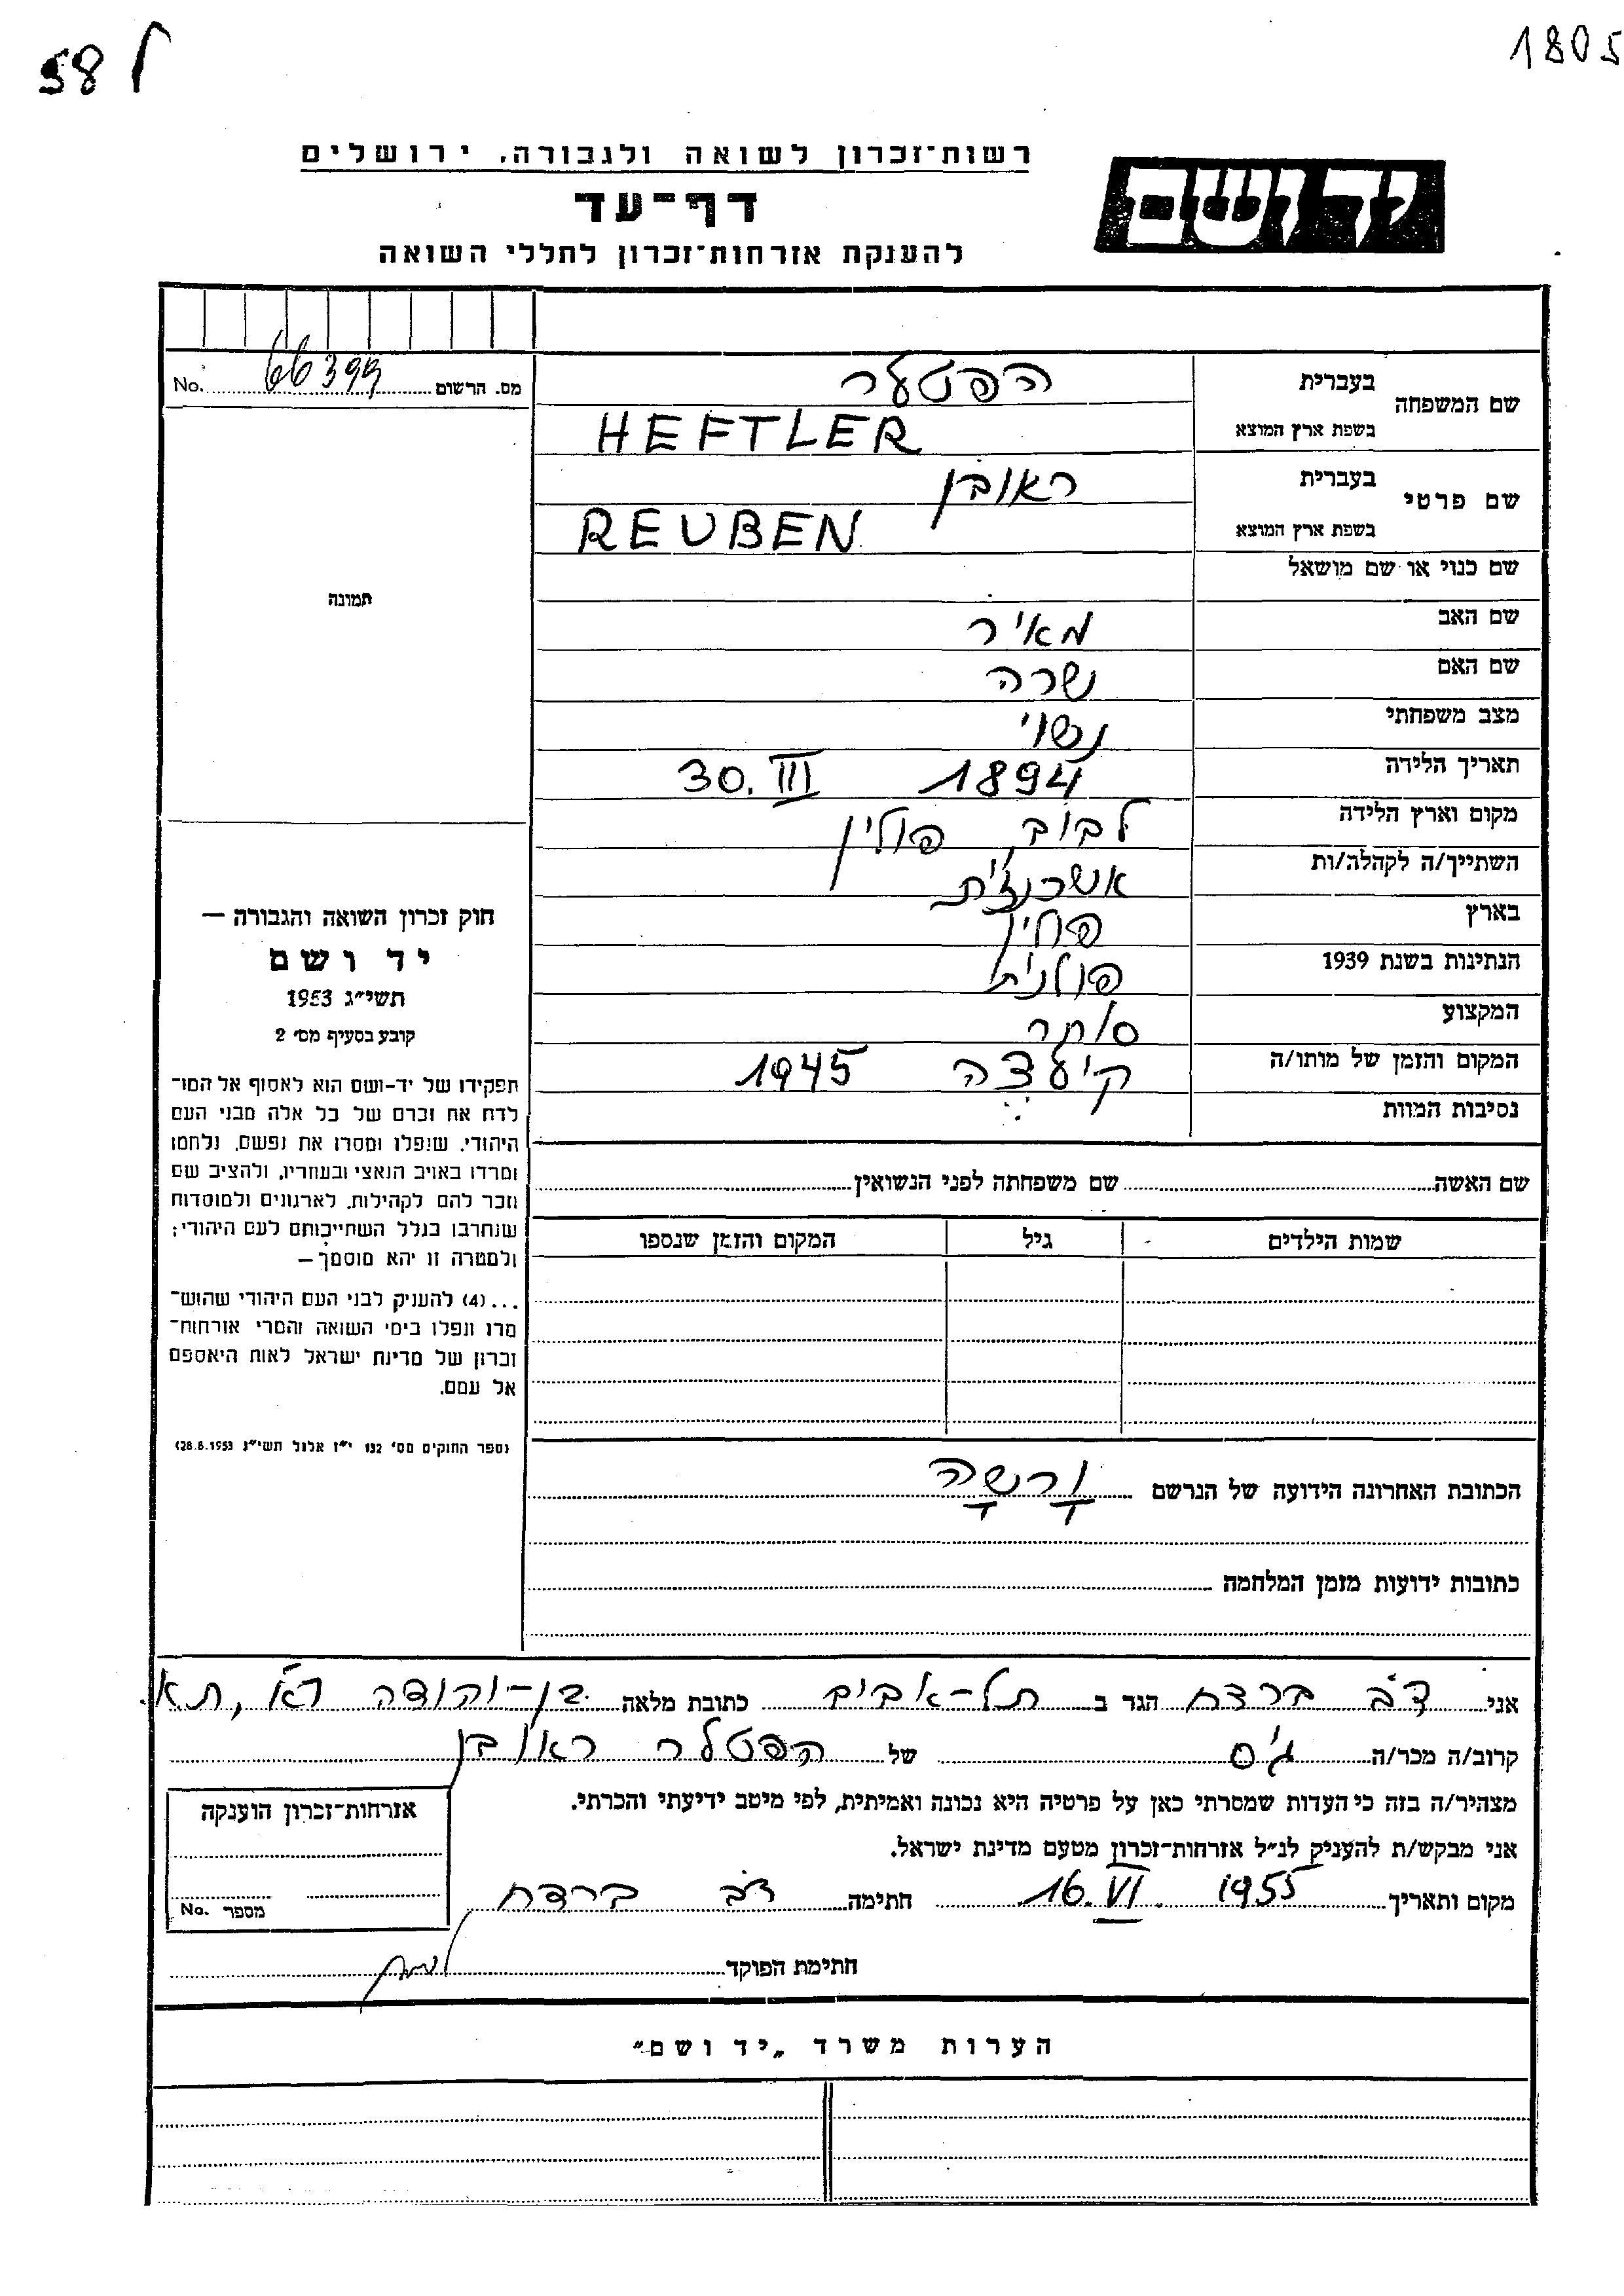 58 ן
1805
רשות־זכרון לשואה ולגבורה, ירושלים
ידושם
דף־עד
להענקת אזרחות־זכרון לחללי השואה
No. 66399 מס. הרשום
שם המשפחה
בעברית הפטלער
בשפת ארץ המוצא HEFTLER
שם פרטי
בעברית ראובן
בשפת ארץ המוצא REUBEN
שם כנוי או שם מושאל
שם האב מאיר
שם האם שרה
מצב משפחתי נשוי
תאריך הלידה 1894 30. III
מקום וארץ הלידה לבוב פולין
השתייך/ה לקהלה/ות אשכנזית
בארץ פולין
הנתינות בשנת 1939 פולנית
המקצוע סוחר
המקום והזמן של מותו/ה קיעלצה 1945
נסיבות המוות
תמונה
חוק זכרון השואה והגבורה —
יד ושם
תשי״ג 1953
קובע בסעיף מס׳ 2
תפקידו של יד-ושם הוא לאסוף אל המו־
לדת את זכרם של כל אלה מבני העם
היהודי, שנפלו ומסרו את נפשם, נלחמו
ומרדו באויב הנאצי ובעוזריו, ולהציב שם
וזכר להם לקהילות, לארגונים ולמוסדות
שנחרבו בגלל השתייכותם לעם היהודי;
ולמטרה זו יהא מוסמך —
...(4) להעניק לבני העם היהודי שהוש־
מדו ונפלו בימי השואה והמרי אזרחות־
זכרון של מדינת ישראל לאות היאספם
אל עמם.
(ספר החוקים מס׳ 132 י״ז אלול תשי״ג 28.8.1953)
שם האשה שם משפחתה לפני הנשואין
שמות הילדים גיל המקום והזמן שנספו
הכתובת האחרונה הידועה של הנרשם ורשה
כתובות ידועות מזמן המלחמה
אני דב ברדח הגר ב תל-אביב כתובת מלאה בן-יהודה ת״א
קרוב/ה מכר/ה גיס של הפטלר ראובן
מצהיר/ה בזה כי העדות שמסרתי כאן על פרטיה היא נכונה ואמיתית, לפי מיטב ידיעתי והכרתי.
אני מבקש/ת להעניק לנ״ל אזרחות־זכרון מטעם מדינת ישראל.
מקום ותאריך 1955 16. VI. חתימה דב ברדח
חתימת הפוקד
אזרחות־זכרון הוענקה
מספר No.
הערות משרד „יד ושם״